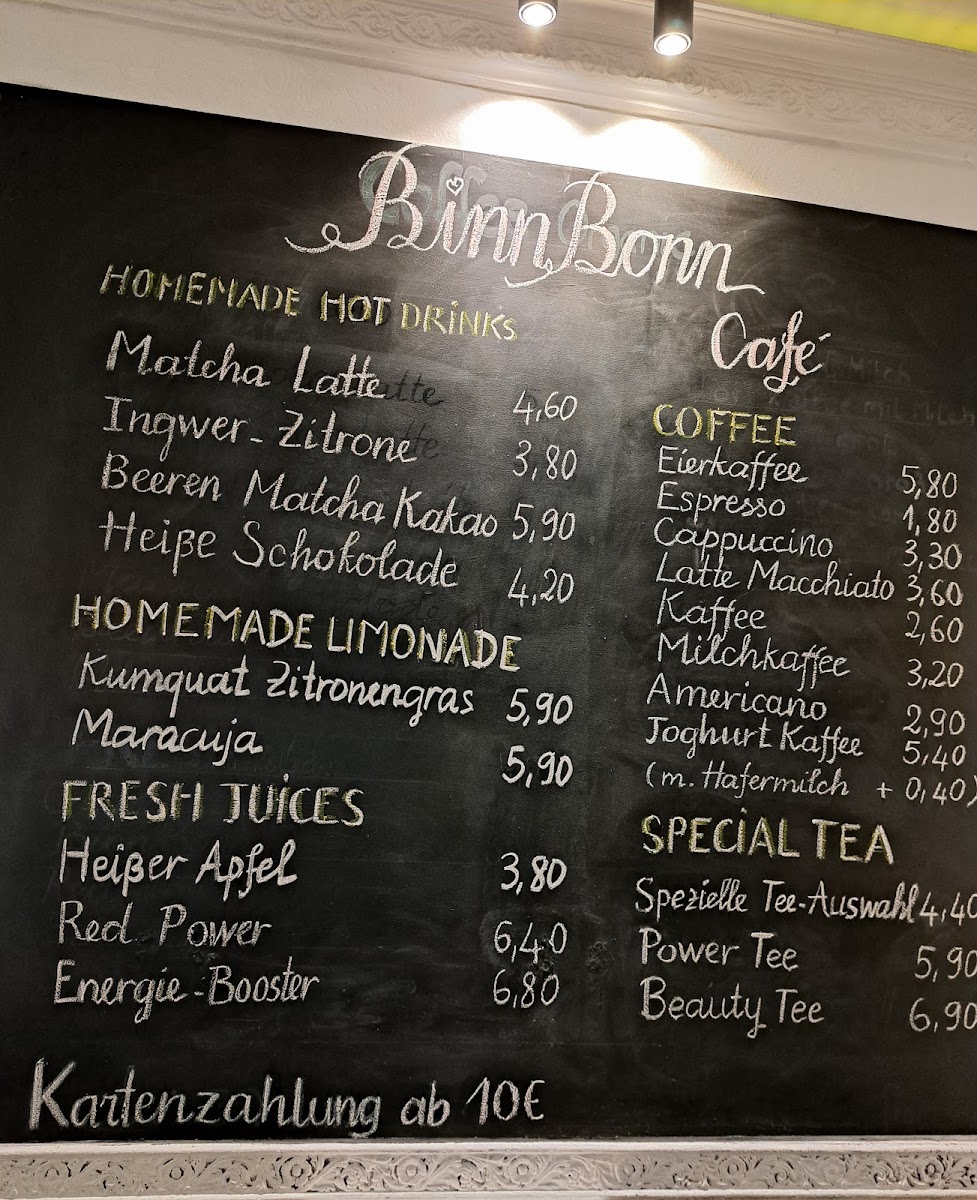 BinnBonn
Café
HOMEMADE HOT DRINKS
Matcha Latte 4,60
Ingwer-Zitrone 3,80
Beeren Matcha Kakao 5,90
Heiße Schokolade 4,20
HOMEMADE LIMONADE
Kumquat Zitronengras 5,90
Maracuja 5,90
FRESH JUICES
Heißer Apfel 3,80
Red Power 6,40
Energie-Booster 6,80
COFFEE
Eierkaffee 5,80
Espresso 1,80
Cappuccino 3,30
Latte Macchiato 3,60
Kaffee 2,60
Milchkaffee 3,20
Americano 2,90
Joghurt Kaffee 5,40
(m. Hafermilch + 0,40)
SPECIAL TEA
Spezielle Tee-Auswahl 4,40
Power Tee 5,90
Beauty Tee 6,90
Kartenzahlung ab 10€